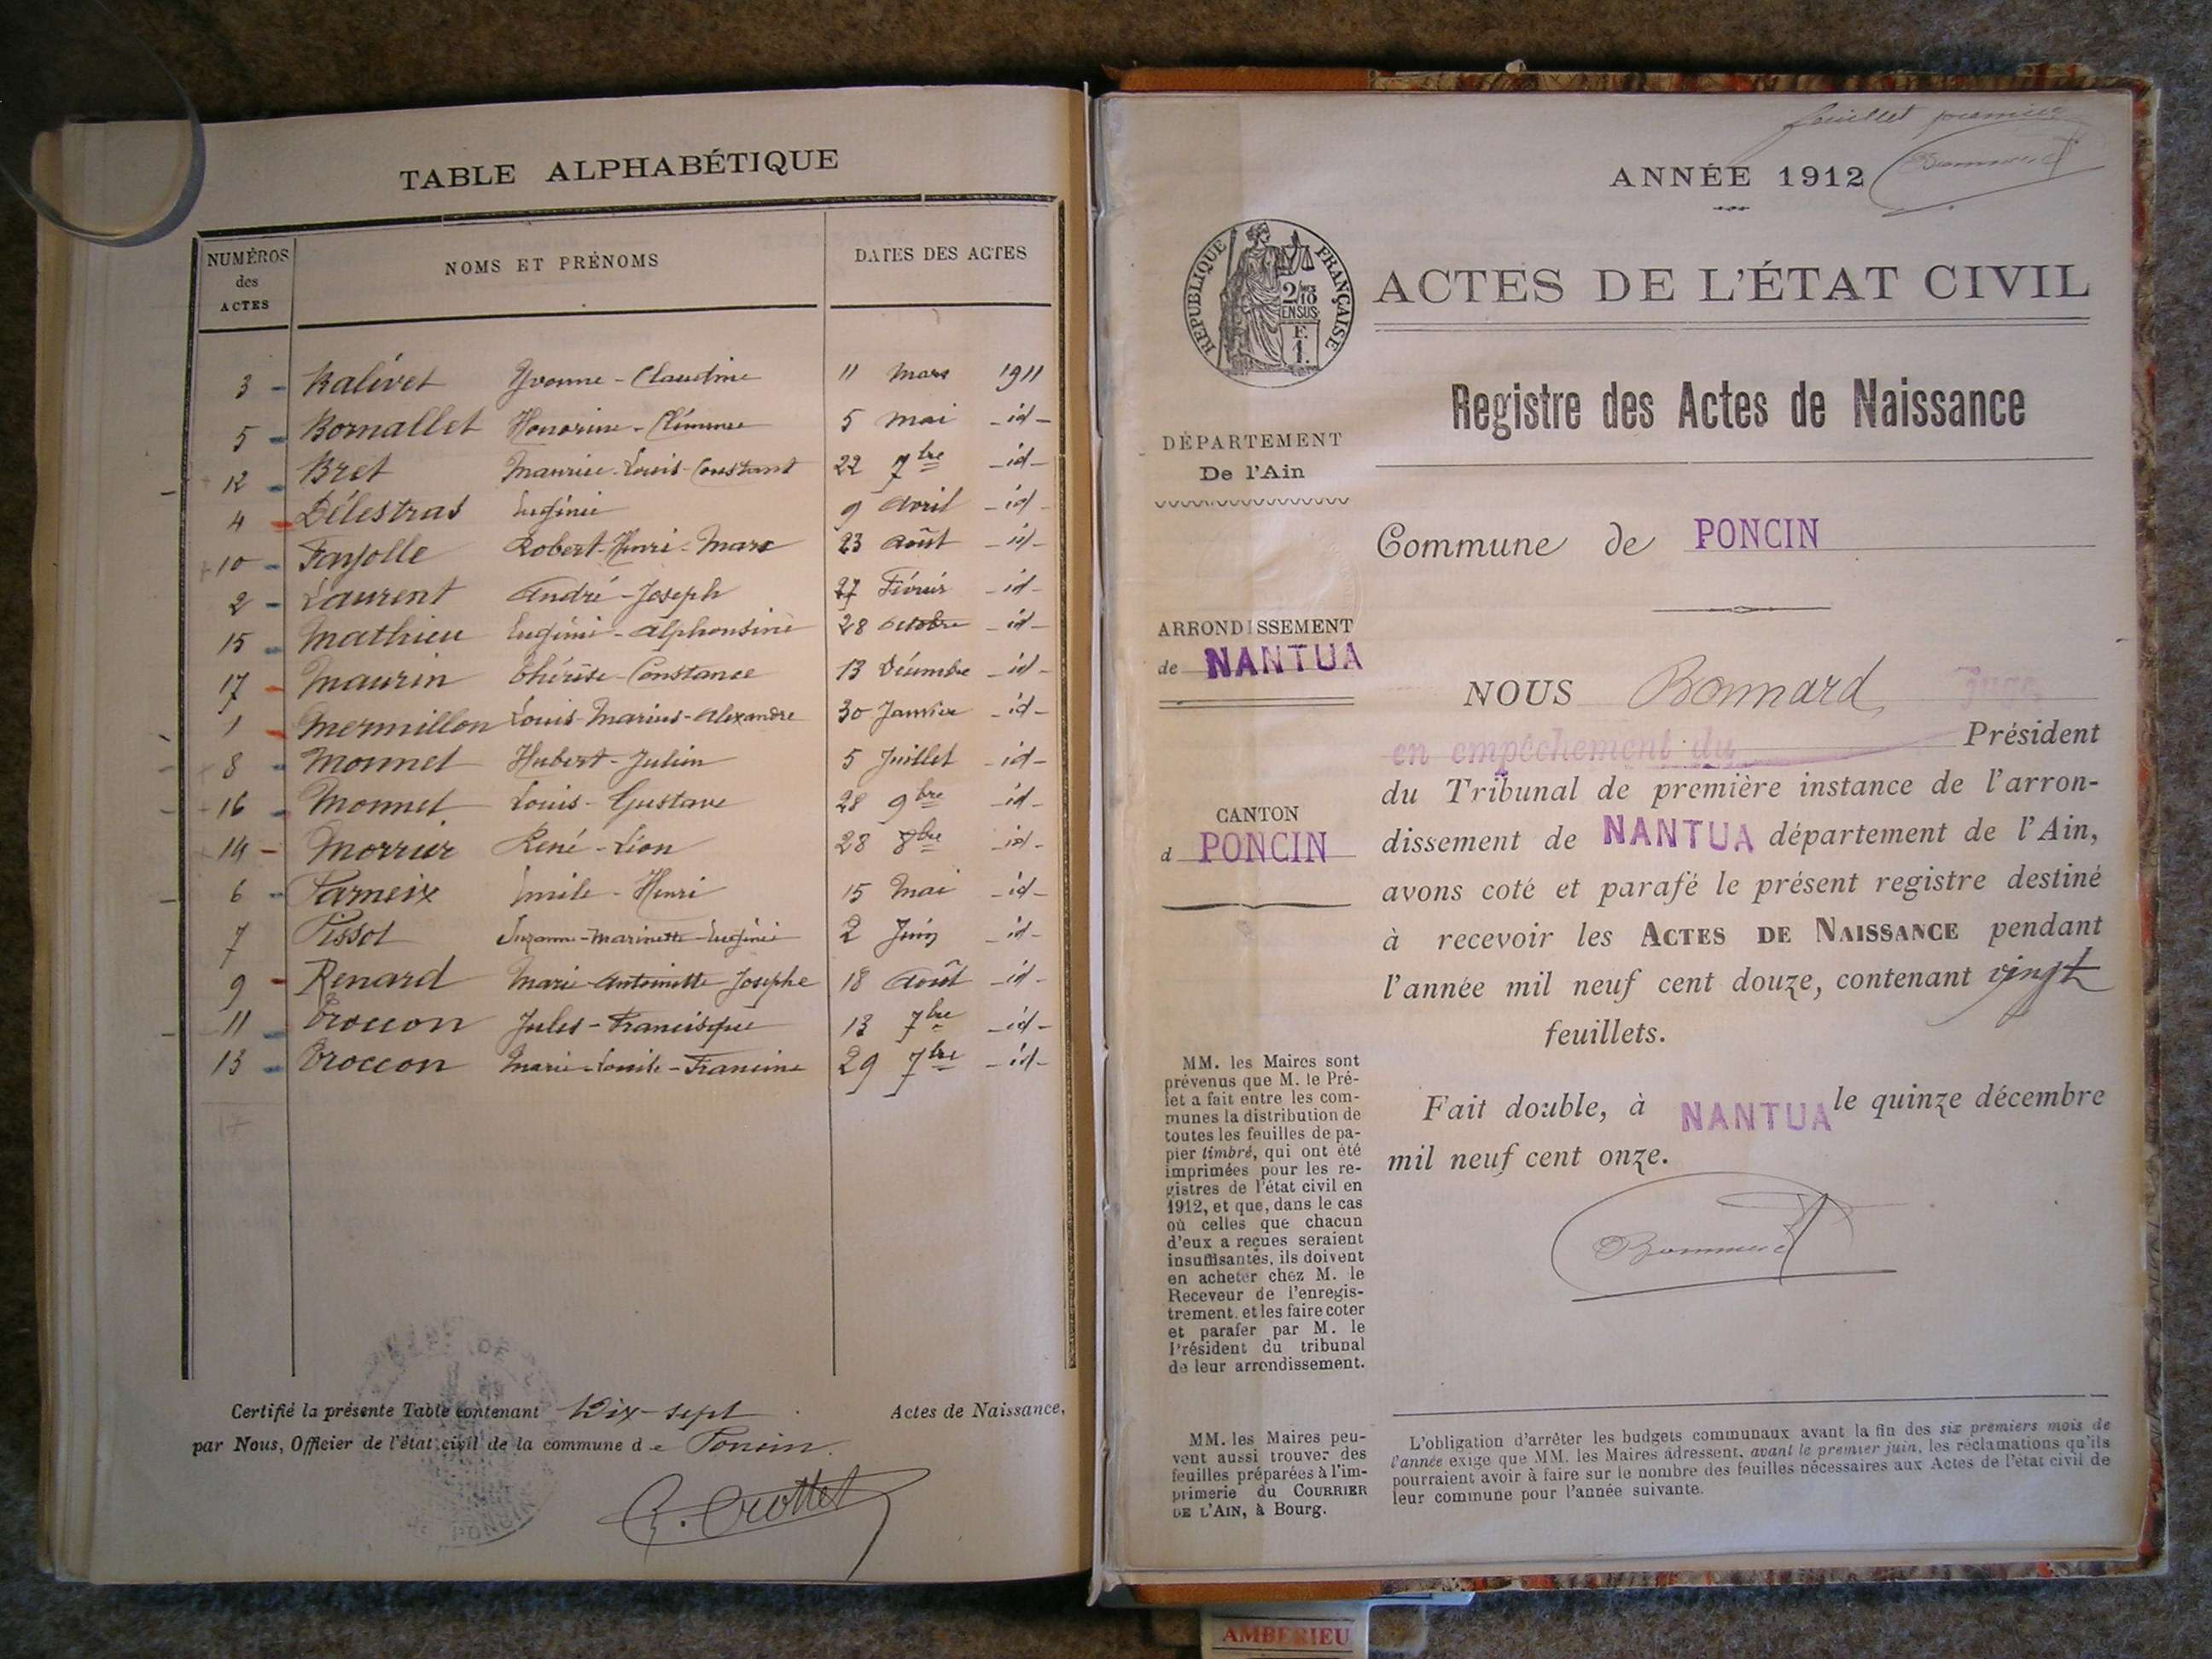 TABLE ALPHABÉTIQUE
NUMÉROS des ACTES
NOMS ET PRÉNOMS
DATES DES ACTES
3 - Balivet Yvonne - Claudine 11 Mars 1911
5 - Bornallet Honorine - Clémence 5 Mai - id -
12 - Bret Maurice - Louis - Constant 22 7bre - id -
4 - Délestras Eugénie 9 Avril - id -
10 - Fayolle Robert - Henri - Marc 23 Août - id -
2 - Laurent André - Joseph 27 Février - id -
15 - Mathieu Eugénie - Alphonsine 28 Octobre - id -
17 - Maurin Thérèse - Constance 13 Décembre - id -
1 - Mermillon Louis - Marius - Alexandre 30 Janvier - id -
8 - Monnet Hubert - Julien 5 Juillet - id -
16 - Monnet Louis - Gustave 28 9bre - id -
14 - Morrier René - Léon 28 8bre - id -
6 - Parneix Emile - Henri 15 Mai - id -
7 Pissot Suzanne - Marinette - Eugénie 2 Juin - id -
9 - Renard Marie - Antoinette - Josephe 18 Août - id -
11 - Troccon Jules - Francisque 13 7bre - id -
13 - Troccon Marie - Louise - Francine 29 7bre - id -
17
Certifié la présente Table contenant Dix-sept Actes de Naissance,
par Nous, Officier de l'état civil de la commune de Poncin.
Crottet
feuillet premier
Bonnard
ANNÉE 1912
RÉPUBLIQUE FRANÇAISE
2/10 EN SUS
F. 1.
ACTES DE L'ÉTAT CIVIL
Registre des Actes de Naissance
DÉPARTEMENT
De l'Ain
Commune de PONCIN
ARRONDISSEMENT
de NANTUA
CANTON
d PONCIN
NOUS Bonnard, Juge
en empêchement du Président
du Tribunal de première instance de l'arron-
dissement de NANTUA département de l'Ain,
avons coté et parafé le présent registre destiné
à recevoir les ACTES DE NAISSANCE pendant
l'année mil neuf cent douze, contenant vingt
feuillets.
Fait double, à NANTUA le quinze décembre
mil neuf cent onze.
Bonnard
MM. les Maires sont
prévenus que M. le Pré-
fet a fait entre les com-
munes la distribution de
toutes les feuilles de pa-
pier timbré, qui ont été
imprimées pour les re-
gistres de l'état civil en
1912, et que, dans le cas
où celles que chacun
d'eux a reçues seraient
insuffisantes, ils doivent
en acheter chez M. le
Receveur de l'enregis-
trement, et les faire coter
et parafer par M. le
Président du tribunal
de leur arrondissement.
MM. les Maires peu-
vent aussi trouver des
feuilles préparées à l'im-
primerie du COURRIER
DE L'AIN, à Bourg.
L'obligation d'arrêter les budgets communaux avant la fin des six premiers mois de
l'année exige que MM. les Maires adressent, avant le premier juin, les réclamations qu'ils
pourraient avoir à faire sur le nombre des feuilles nécessaires aux Actes de l'état civil de
leur commune pour l'année suivante.
AMBERIEU